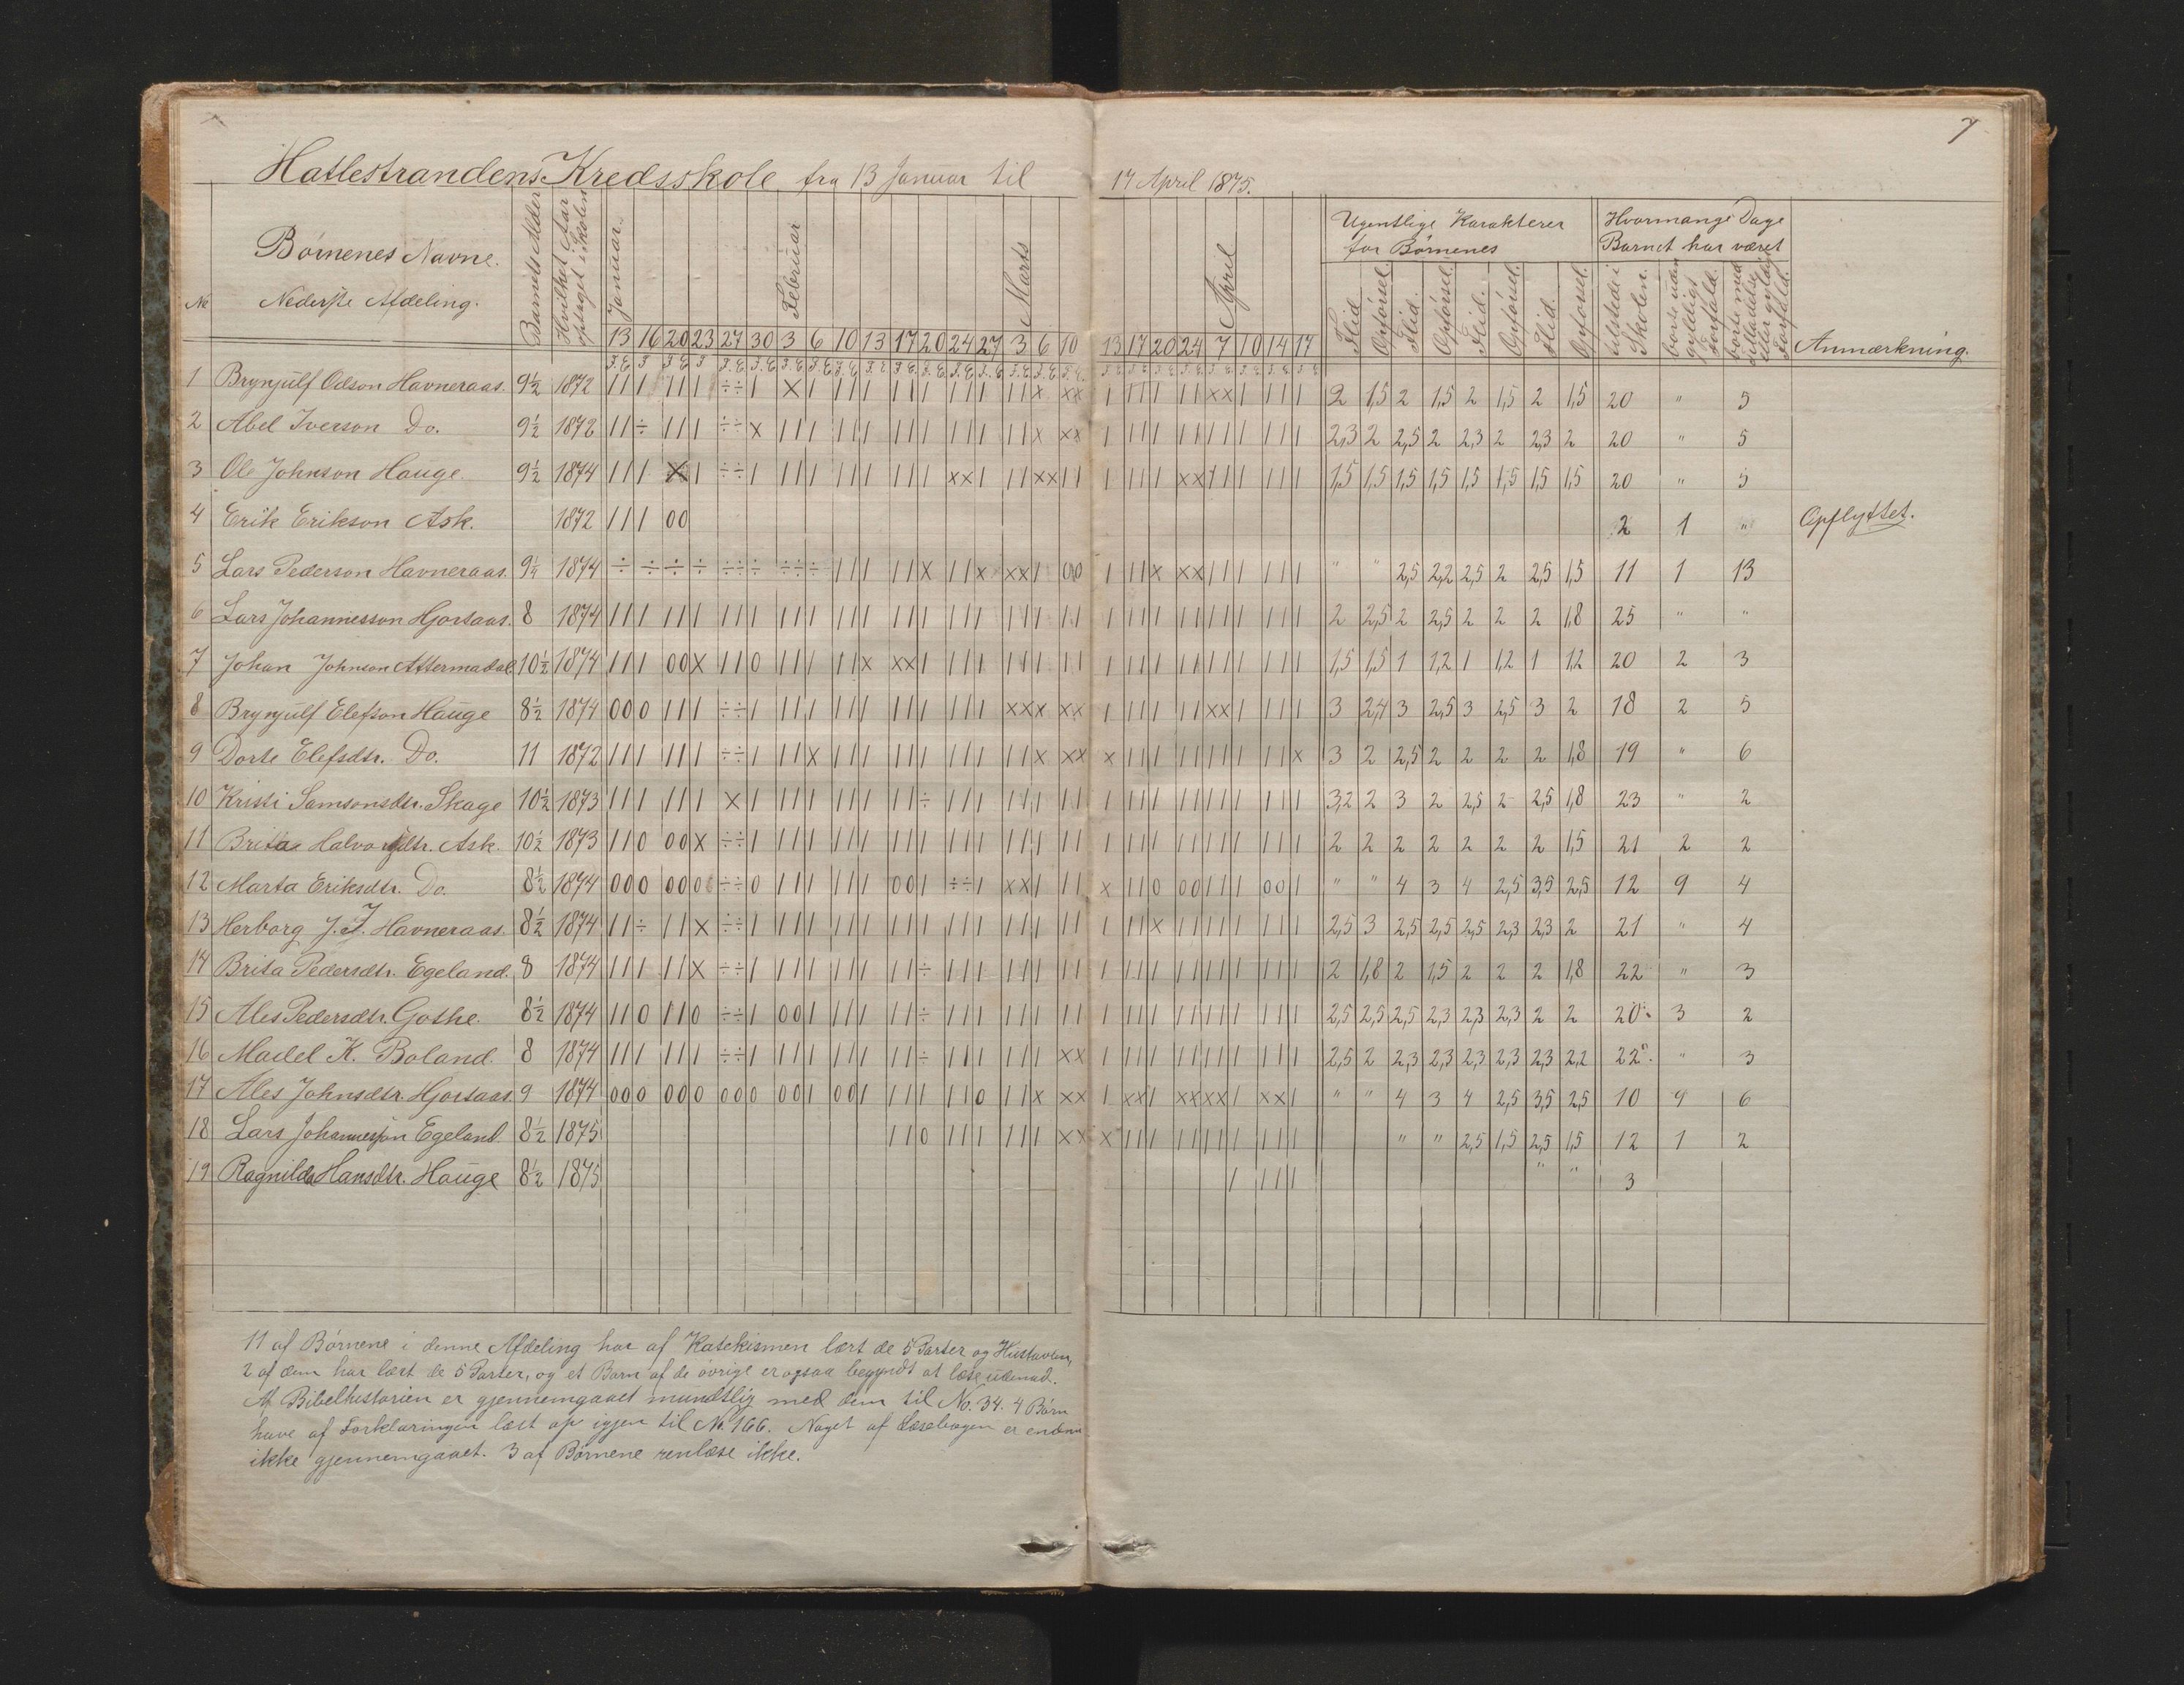 7
Hatlestrandens Kredsskole fra 13 Januar til 17 April 1875.
No
Børnenes Navne.
Nederste Afdeling.
Barnets Alder
Hvilket Aar optaget i Skolen
Januar. Februar Marts April
Ugentlige Karakterer for Børnenes
Hvormange Dage Barnet har været
Flid. Opførsel. Flid. Opførsel. Flid. Opførsel. Flid. Opførsel.
tilstede i Skolen. borte uden gyldigt Forfald. borte med Tilladelse eller gyldigt Forfald.
Anmærkning.
13 16 20 23 27 30 3 6 10 13 17 20 24 27 3 6 10 13 17 20 24 7 10 14 17
1 Brynjulf Odson Havneraas. 9½ 1872 2 1,5 2 1,5 2 1,5 2 1,5 20 " 5
2 Abel Iverson Do. 9½ 1872 2,3 2 2,5 2 2,3 2 2,3 2 20 " 5
3 Ole Johnson Hauge. 9½ 1874 1,5 1,5 1,5 1,5 1,5 1,5 1,5 1,5 20 " 5
4 Erik Erikson Ask. 1872 2 1 " Opflyttet.
5 Lars Pederson Havneraas. 9¼ 1874 " " 2,5 2,2 2,5 2 2,5 1,5 11 1 13
6 Lars Johannesson Hjortaas. 8 1874 2 2,5 2 2,5 2 2 2 1,8 25 " "
7 Johan Johnson Attermadal 10½ 1874 1,5 1,5 1 1,2 1 1,2 1 1,2 20 2 3
8 Brynjulf Elefson Hauge 8½ 1874 3 2,4 3 2,5 3 2,5 3 2 18 2 5
9 Dorte Elefsdtr. Do. 11 1872 3 2 2,5 2 2 2 2 1,8 19 " 6
10 Kristi Samsonsdtr. Skage 10½ 1873 3,2 2 3 2 2,5 2 2,5 1,8 23 " 2
11 Brita Halvorsdtr. Ask. 10½ 1873 2 2 2 2 2 2 2 1,5 21 2 2
12 Marta Eriksdtr. Do. 8½ 1874 " " 4 3 4 2,5 3,5 2,5 12 9 4
13 Herborg J. J. Havneraas. 8½ 1874 2,5 3 2,5 2,5 2,5 2,3 2,3 2 21 " 4
14 Brita Pedersdtr. Egeland. 8 1874 2 1,8 2 1,5 2 2 2 1,8 22 " 3
15 Ales Pedersdtr. Gothe. 8½ 1874 2,5 2,5 2,5 2,3 2,3 2,3 2 2 20 3 2
16 Madel K. Boland. 8 1874 2,5 2 2,3 2,3 2,3 2,3 2,3 2,2 22 " 3
17 Ales Johnsdtr. Hjortaas. 9 1874 " " 4 3 4 2,5 3,5 2,5 10 9 6
18 Lars Johannesson Egeland 8½ 1875 " " 2,5 1,5 2,5 1,5 12 1 2
19 Ragnilda Hansdtr. Hauge 8½ 1875 " " 3
11 af Børnene i denne Afdeling har af Katekismen lært de 5 Parter og Hustavlen,
2 af dem har lært de 5 Parter, og et Barn af de øvrige er ogsaa begyndt at læse udenad.
Af Bibelhistorien er gjennemgaaet mundtlig med dem til No. 34. 4 Børn
have af Forklaringen læst op igjen til No. 166. Noget af Læsebogen er endnu
ikke gjennemgaaet. 3 af Børnene renlæse ikke.